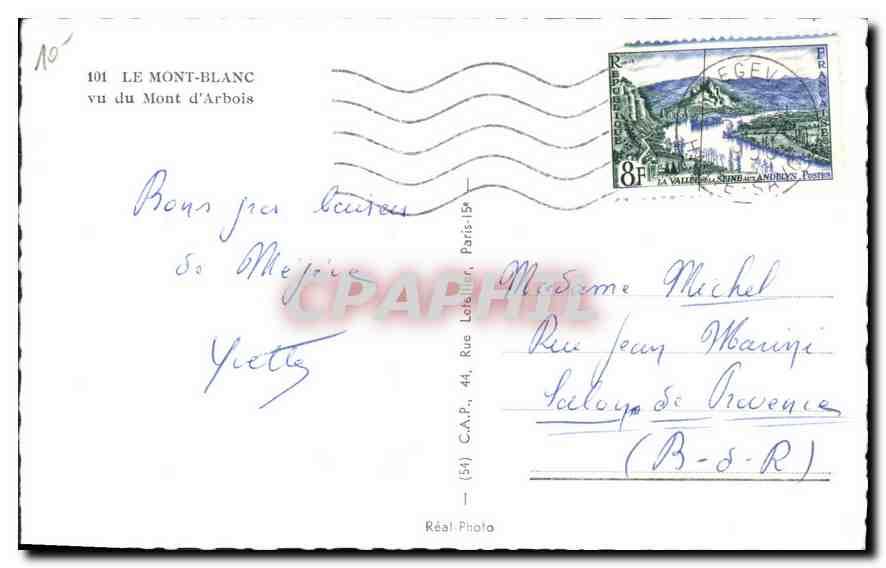 10-
101 LE MONT-BLANC
vu du Mont d'Arbois
RÉPUBLIQUE
FRANÇAISE
8F
LA VALLÉE DE LA SEINE AUX ANDELYS POSTES
MEGEVE
Bons
de Mégève
Yvette
(54) C.A.P., 44, Rue Letellier, Paris-15e
CPAPHIL
Madame Michel
Rue Jean
Salon de Provence
(B-d-R)
Réal-Photo